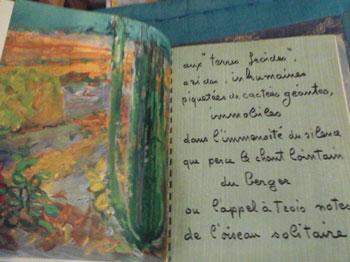 aux "terres froides",
arides, inhumaines
piquetées de cactées géantes,
immobiles
dans l'immensité du silence
que perce le chant lointain
du berger
ou l'appel à trois notes
de l'oiseau solitaire